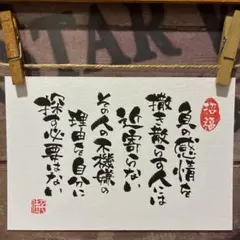 招福
負の感情を
撒き散らす人には
近寄らない
その人の不機嫌の
理由を自分に
探す必要はない